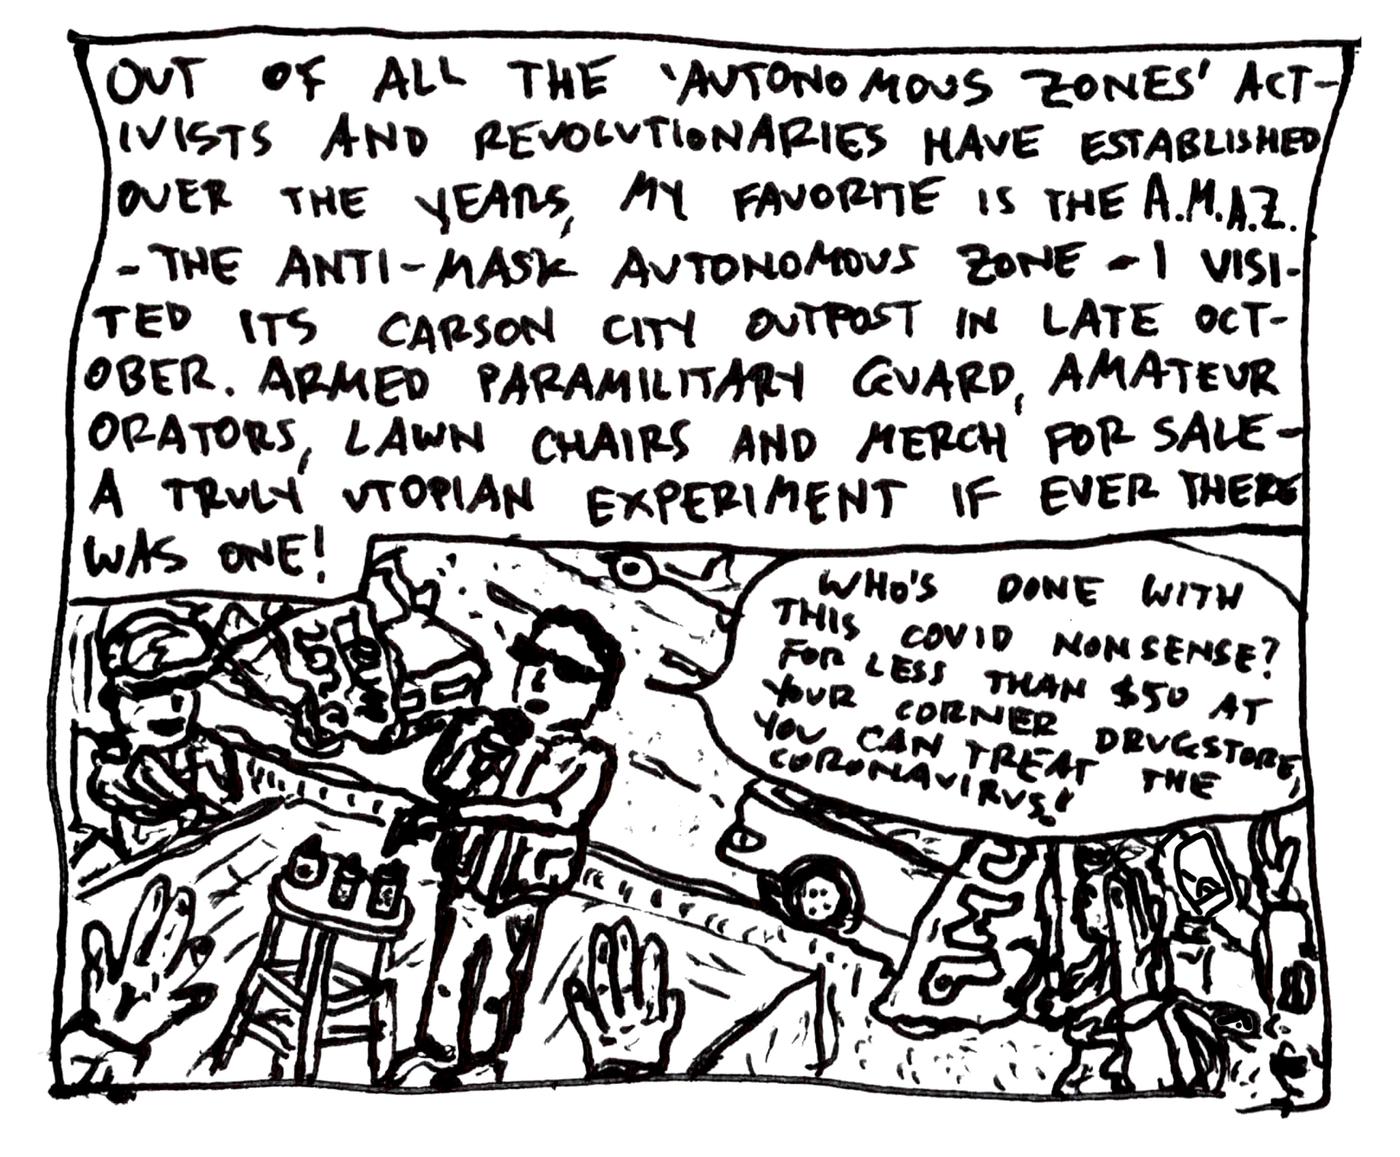 OUT OF ALL THE 'AUTONOMOUS ZONES' ACT-
IVISTS AND REVOLUTIONARIES HAVE ESTABLISHED
OVER THE YEARS, MY FAVORITE IS THE A.M.A.Z.
- THE ANTI-MASK AUTONOMOUS ZONE - I VISI-
TED ITS CARSON CITY OUTPOST IN LATE OCT-
OBER. ARMED PARAMILITARY GUARD, AMATEUR
ORATORS, LAWN CHAIRS AND MERCH FOR SALE-
A TRULY UTOPIAN EXPERIMENT IF EVER THERE
WAS ONE!
WHO'S DONE WITH
THIS COVID NONSENSE?
FOR LESS THAN $50 AT
YOUR CORNER DRUGSTORE,
YOU CAN TREAT THE
CORONAVIRUS!